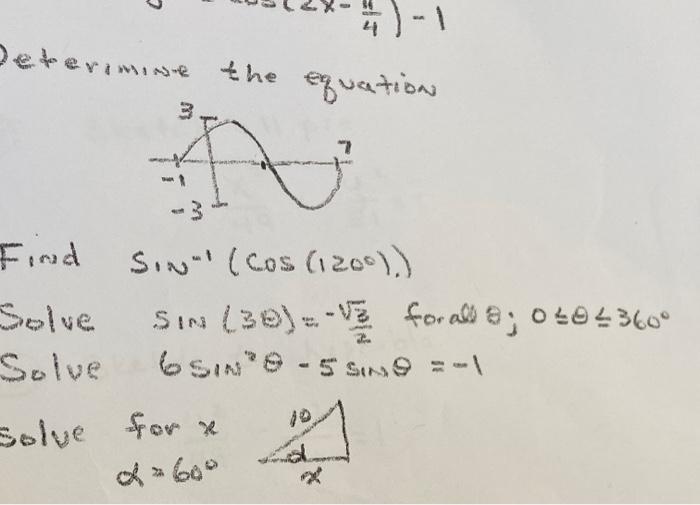 cos(2x-π/4)-1
Determine the equation
3
7
-1
-3
Find SIN⁻¹(cos(120°).)
Solve SIN(3θ)=-√3/2 for all θ; 0≤θ≤360°
Solve 6 SIN²θ - 5 SINθ = -1
Solve for x
10
α
α=60°
x